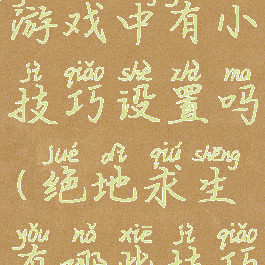 游戏中有小
jì qiǎo shè zhì ma
技巧设置吗
jué dì qiú shēng
(绝地求生
yǒu nǎ xiē jì qiǎo
有哪些技巧